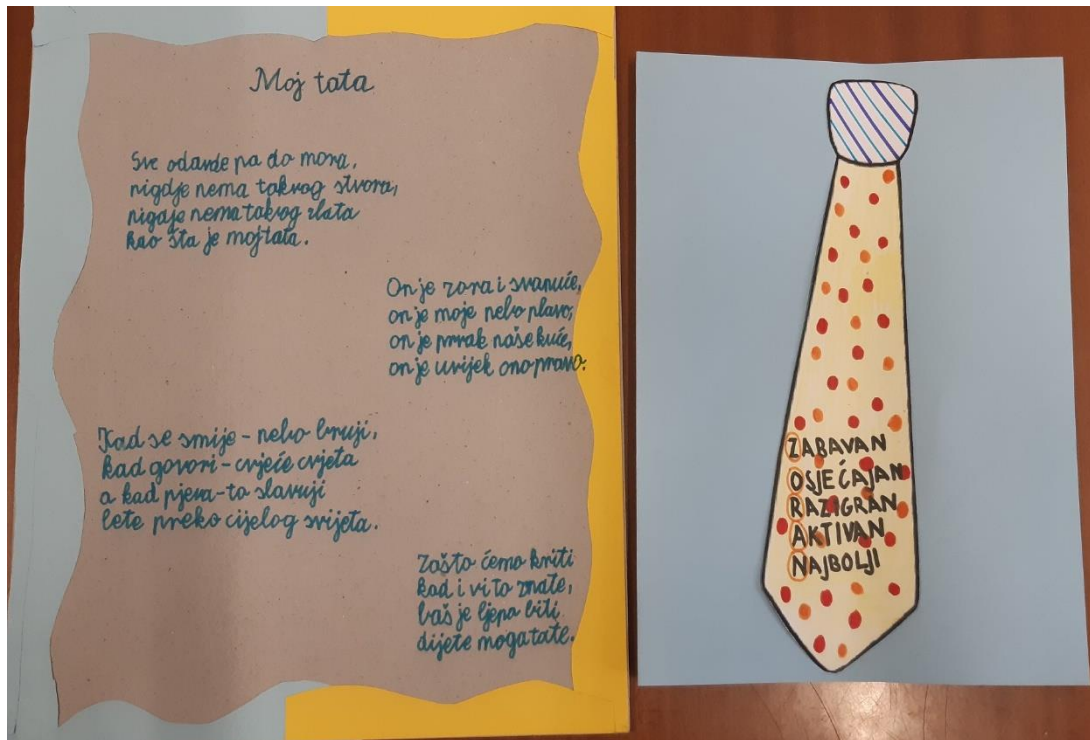 Moj tata
Sve odavde pa do mora,
nigdje nema takvog stvora,
nigdje nema takvog zlata
kao šta je moj tata.
On je zora i svanuće,
on je moje nebo plavo,
on je prvak naše kuće,
on je uvijek ono pravo.
Kad se smije - nebo bruji,
kad govori - cvjeće cvjeta
a kad pjeva - to slavuji
lete preko cijelog svijeta.
Zašto ćemo kriti
kad i vi to znate,
baš je ljepo biti
dijete moga tate.
ZABAVAN
OSJEĆAJAN
RAZIGRAN
AKTIVAN
NAJBOLJI